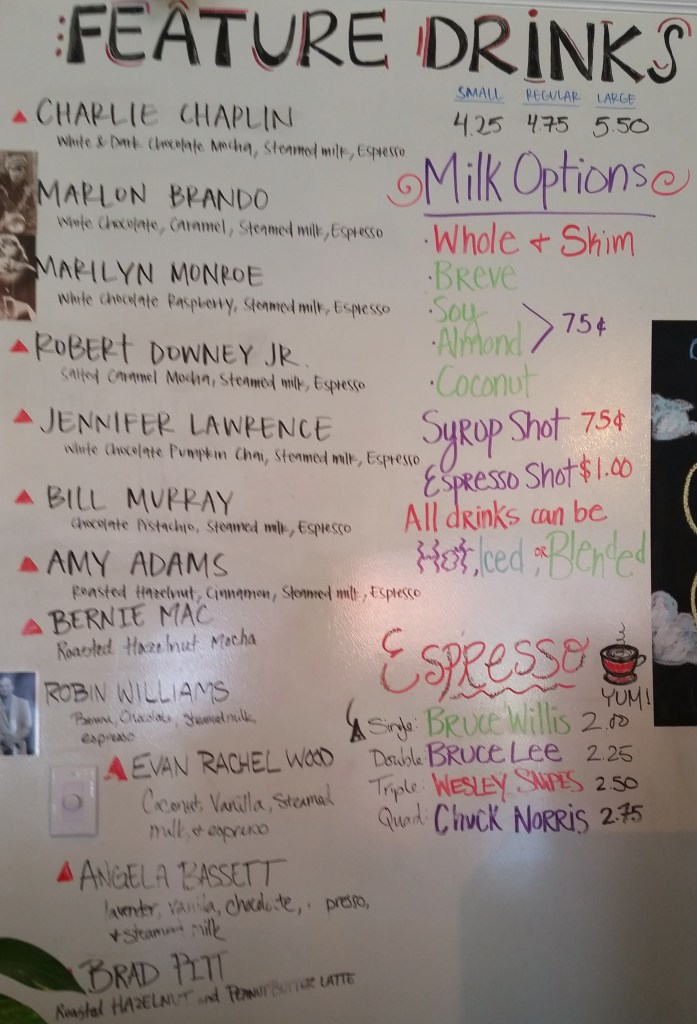 FEATURE DRINKS
SMALL REGULAR LARGE
4.25 4.75 5.50
CHARLIE CHAPLIN
White & Dark Chocolate Mocha, Steamed milk, Espresso
MARLON BRANDO
White Chocolate, Caramel, Steamed milk, Espresso
MARILYN MONROE
White Chocolate Raspberry, Steamed milk, Espresso
ROBERT DOWNEY JR.
Salted Caramel Mocha, Steamed milk, Espresso
JENNIFER LAWRENCE
White Chocolate Pumpkin Chai, Steamed milk, Espresso
BILL MURRAY
Chocolate Pistachio, Steamed milk, Espresso
AMY ADAMS
Roasted Hazelnut, Cinnamon, Steamed milk, Espresso
BERNIE MAC
Roasted Hazelnut Mocha
ROBIN WILLIAMS
Chocolate, Steamed milk,
espresso
EVAN RACHEL WOOD
Coconut, Vanilla, Steamed
milk, & espresso
ANGELA BASSETT
lavender, vanilla, chocolate, presso,
& steamed milk
BRAD PITT
Roasted HAZELNUT and PEANUT BUTTER LATTE
Milk Options
· Whole & Skim
· Breve
· Soy
· Almond
75¢
· Coconut
Syrop Shot 75¢
Espresso Shot $1.00
All drinks can be
Hot, Iced, OR Blended
Espresso
YUM!
Single: Bruce Willis 2.00
Double: BRUCE LEE 2.25
Triple: WESLEY SNIPES 2.50
Quad: CHUCK NORRIS 2.75